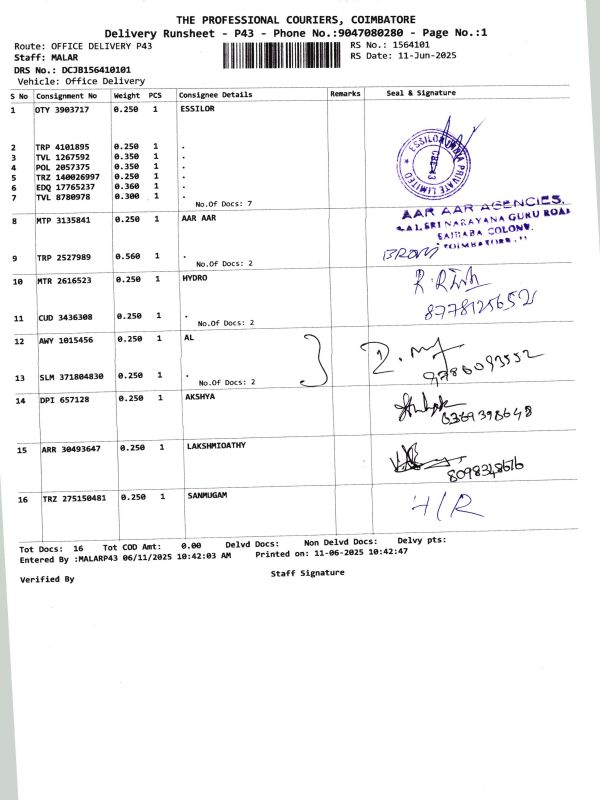 THE PROFESSIONAL COURIERS, COIMBATORE
Delivery Runsheet - P43 - Phone No.:9047080280 - Page No.:1
Route: OFFICE DELIVERY P43 RS No.: 1564101
Staff: MALAR RS Date: 11-Jun-2025
DRS No.: DCJB156410101
Vehicle: Office Delivery
S No Consignment No Weight PCS Consignee Details Remarks Seal & Signature
1 OTY 3903717 0.250 1 ESSILOR
ESSILOR INDIA PRIVATE LIMITED
CBE-43
2 TRP 4101895 0.250 1 .
3 TVL 1267592 0.350 1 .
4 POL 2057375 0.350 1 .
5 TRZ 140026997 0.250 1 .
6 EDQ 17765237 0.360 1 .
7 TVL 8780978 0.300 1 .
No.Of Docs: 7
AAR AAR AGENCIES,
SRI NARAYANA GURU ROAD
SAIBABA COLONY,
COIMBATORE
8 MTP 3135841 0.250 1 AAR AAR
9 TRP 2527989 0.560 1 .
No.Of Docs: 2
10 MTR 2616523 0.250 1 HYDRO
8778125652
11 CUD 3436308 0.250 1 .
No.Of Docs: 2
12 AWY 1015456 0.250 1 AL
9786093552
13 SLM 371804830 0.250 1 .
No.Of Docs: 2
14 DPI 657128 0.250 1 AKSHYA
6369398648
15 ARR 30493647 0.250 1 LAKSHMIOATHY
16 TRZ 275150481 0.250 1 SANMUGAM
H/R
Tot Docs: 16 Tot COD Amt: 0.00 Delvd Docs: Non Delvd Docs: Delvy pts:
Entered By :MALARP43 06/11/2025 10:42:03 AM Printed on: 11-06-2025 10:42:47
Verified By Staff Signature